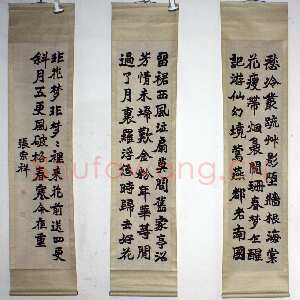 愁冷叢疏艸影墮牆根海棠
花瘦帶烟裊闌珊春夢乍醒
記游仙幻境鶯燕都老南國
裙西風泣扇莫問舊家亭沼
芳情未歎金粉年華等閒
過了月裏羅浮時歸去好花
非花夢非夢〻裡花前送四更
斜月五更風破格春寒今夜重
張宗祥